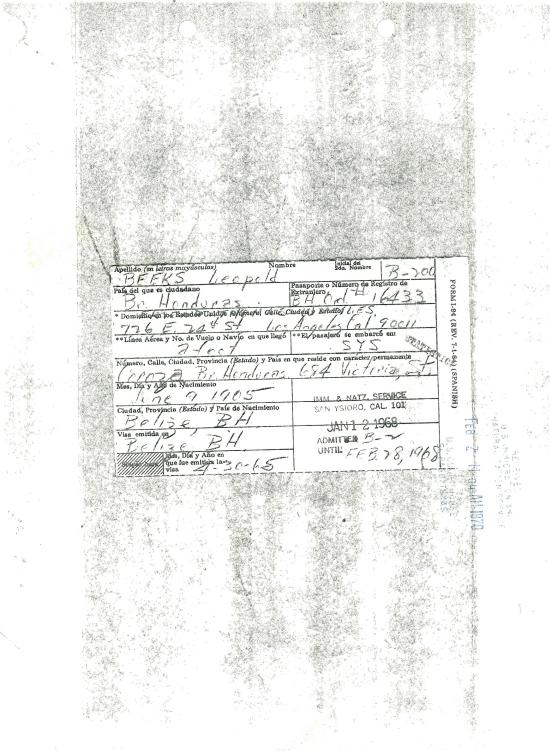 Apellido (en letras mayúsculas) Nombre Inicial del 2do. Nombre
BEEKS Leopold B-200
País del que es ciudadano Pasaporte o Número de Registro de Extranjero
Br. Honduras BH Ord # 16433
* Domicilio en los Estados Unidos (Número, Calle, Ciudad y Estado)
776 E. 24th St Los Angeles Cal 90011
**Línea Aérea y No. de Vuelo o Navío en que llegó **El pasajero se embarcó en:
afoot SYS
Número, Calle, Ciudad, Provincia (Estado) y País en que reside con carácter permanente
Br. Honduras 684 Victoria
Mes, Día y Año de Nacimiento
June 9 1905
Ciudad, Provincia (Estado) y País de Nacimiento
Belize, BH
Visa emitida en
Belize BH
Mes, Día y Año en que fue emitida la visa
4-30-65
IMM. & NATZ. SERVICE
SAN YSIDRO, CAL. 101
JAN 12 1968
ADMITTED B-2
UNTIL: FEB 28, 1968
FORM I-94 (REV. 7-1-64) (SPANISH)